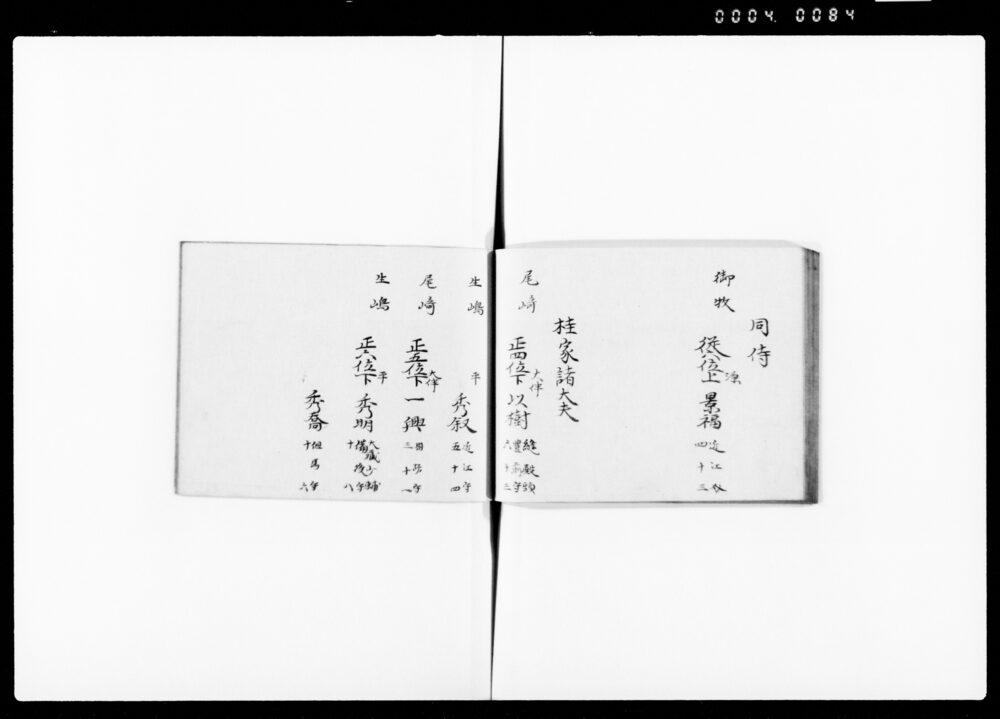 0004. 0084
同侍
御牧 源 従六位上 景福 近江介 四十三
桂家諸大夫
尾崎 大伴 正四位下 以樹 縫殿頭 豊前守 六十三
生嶋 平 秀叙 近江守 五十四
尾崎 大伴 正五位下 一興 三十一
生嶋 平 正六位下 秀明 大蔵少輔 備後守 十八
秀喬 但馬守 十六